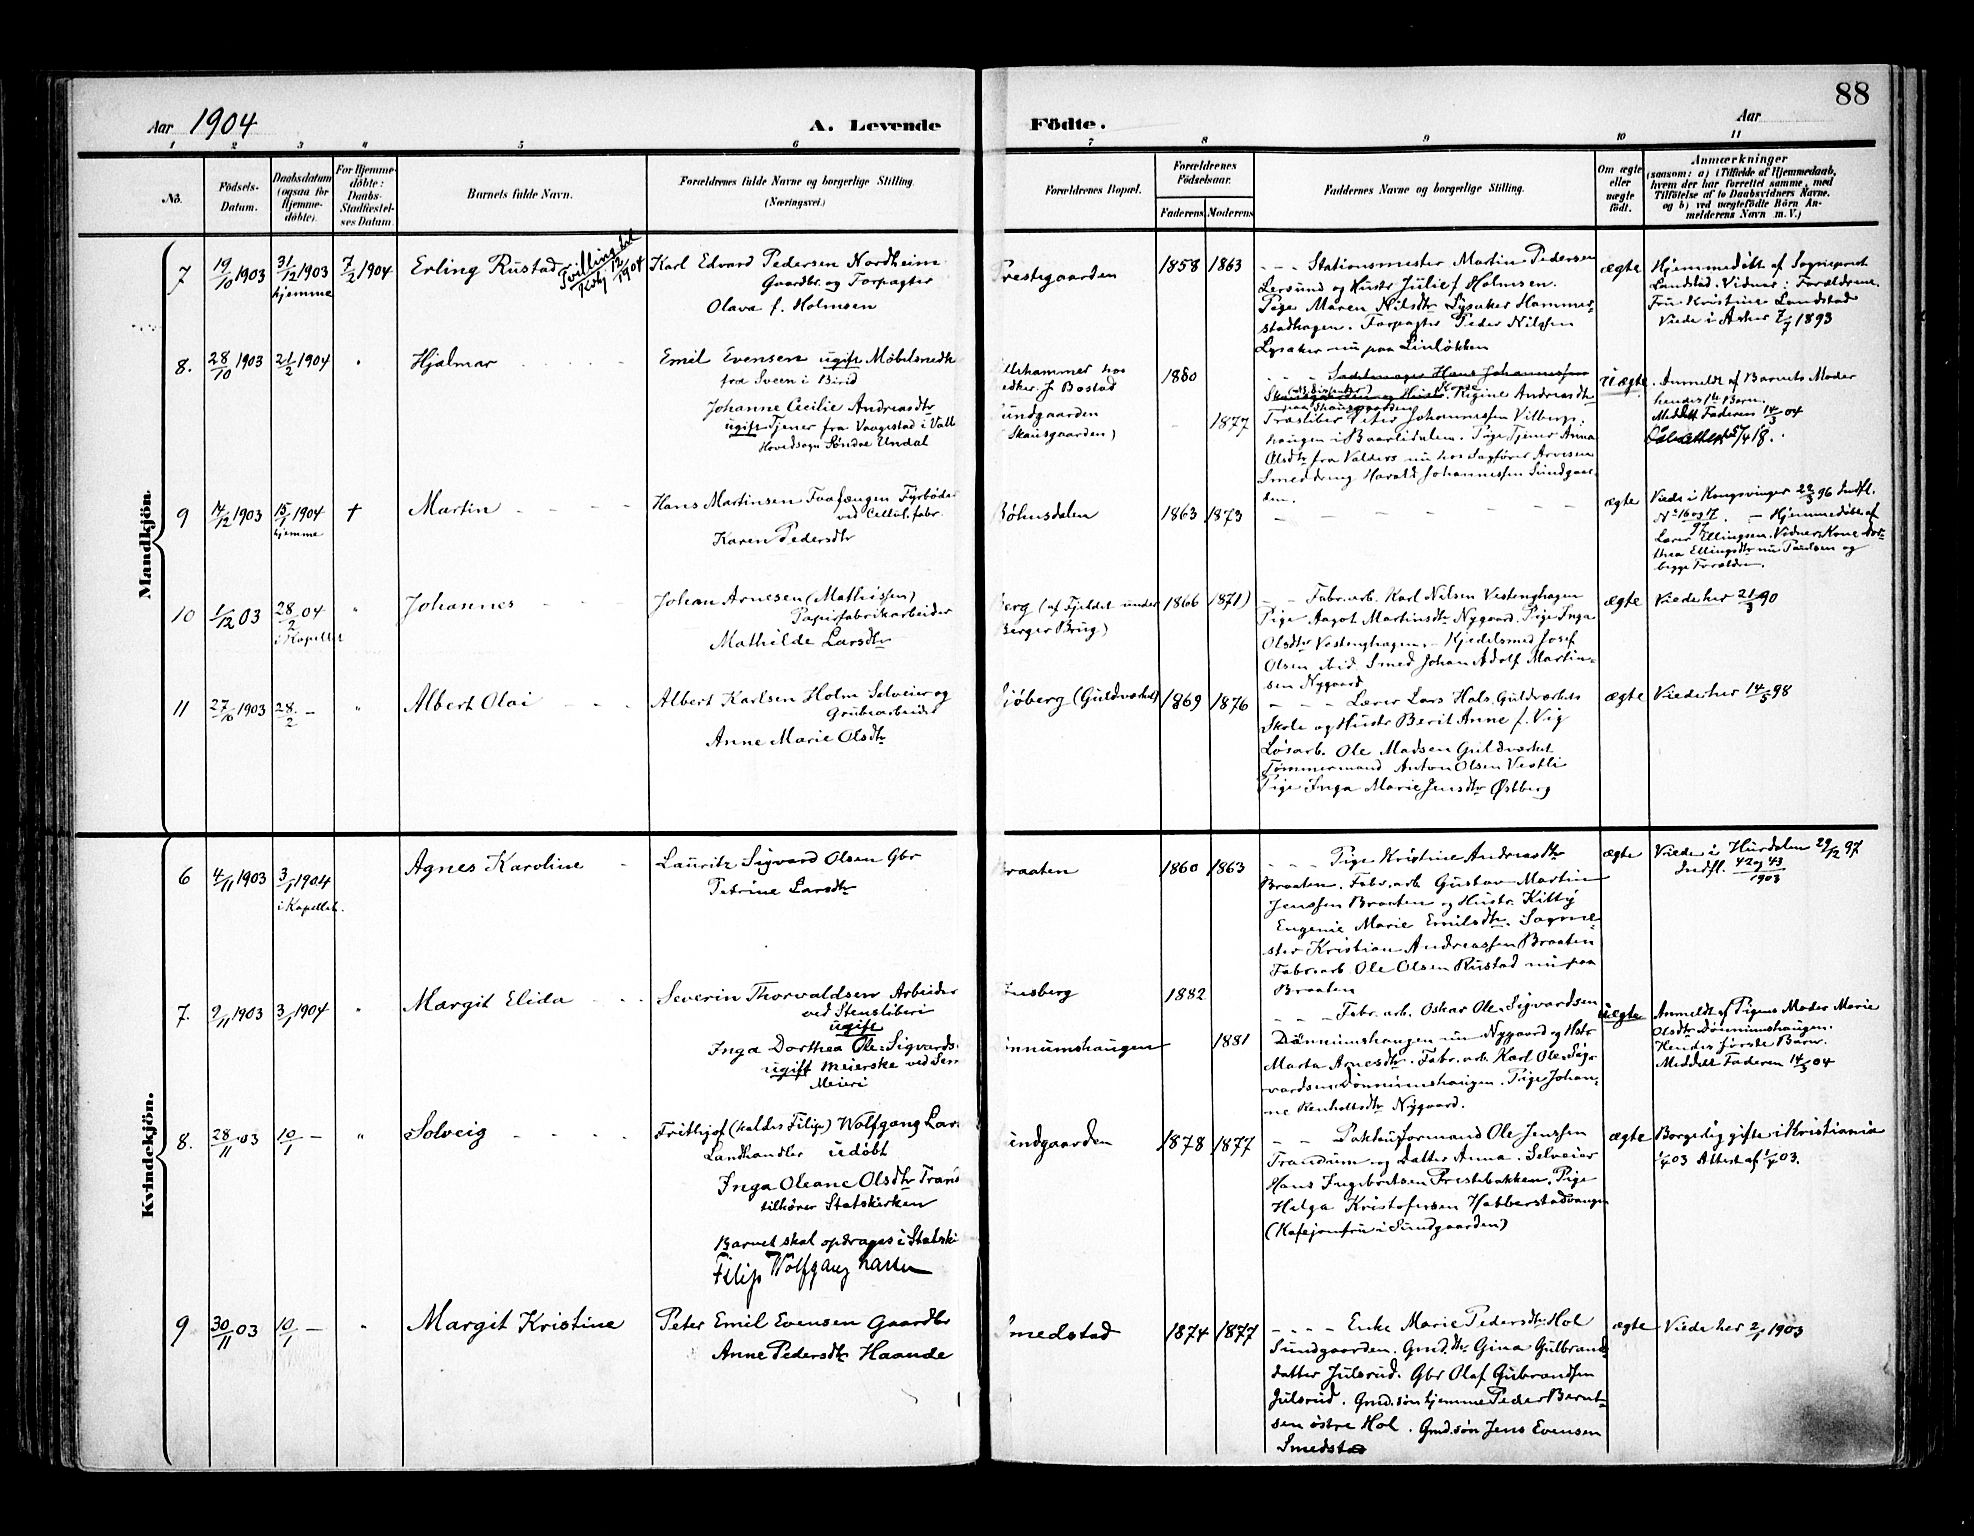 88
Aar 1904
A. Levende
Födte.
Aar
1 2 3 4 5 6 7 8 9 10 11
No.
Födsels-Datum.
Daabsdatum (ogsaa for Hjemme-döbte).
For Hjemme-döbte: Daabs-Stadfæstel-ses Datum
Barnets fulde Navn.
Forældrenes fulde Navne og borgerlige Stilling. (Næringsvei.)
Forældrenes Bopæl.
Forældrenes Födselsaar.
Faderens
Moderens
Faddernes Navne og borgerlige Stilling.
Om ægte eller uægte födt.
Anmærkninger
(saasom: a) i Tilfælde af Hjemmedaab,
hvem der har forrettet samme, med
Tilföielse af to Daabsvidners Navne,
og b) ved uægtefödte Börn An-
melderens Navn m. V.)
Mandkjön.
7 19/10 1903 31/12 1903 hjemme 7/2 1904 Erling Rustad
Karl Edvard Pedersen Nordheim
Gaardbr. og Forpagter
Olava f. Holmsen
Prestegaarden 1858 1863
Stationsmester Martin Pedersen
Lersund og Hustr Julie f Holmsen.
Pige Maren Nilsdtr Lysaker Hammer-
stadhagen. Forpagter Peder Nilssen
Lysaker nu paa Linløkken
ægte
Hjemmedøbt af Sogneprest
Landstad. Vidner: Forældrene.
Fru Kristine Landstad
Viede i Asker 7/7 1893
8. 28/10 1903 21/2 1904 " Hjalmar
Emil Evensen ugift Møbelsnedk
fra Sveen i Birid
Johanne Cecilie Andreasdtr
ugift Tjener fra Vaagestad i Vall
Hovedsogn Søndre Undal
Lillehammer hos
Snedker J Bostad 1880
Sundgaarden
(Skausgaarden) 1877
Sadelmager Hans Johannessen
Regine Andreasdtr
Træsliber Peter Johannessen Vilberg-
haugen i Baarlidalen. Pige Tjener Anna
Olsdtr fra Valders nu hos Sagfører Arvesen
Smeddreng Harald Johannessen Sundgaar-
den.
uægte
Anmeldt af Barnets Moder
hendes 1ste Barn.
Meddelt Faderen 14/3 04
9 14/12 1903 15/1 1904 hjemme † Martin
Hans Martinsen Fyrbøder
ved Cellul.fabr.
Karen Pedersdtr
Bøhnsdalen 1863 1873
ægte
Viede i Kongsvinger 22/3 96 Indfl.
No 16 og 17. — Hjemmedøbt af
Lærer Ellingsen. Vidner: Kone Dor-
thea Ellingsdtr nu Paulsen og
begge Forældre.
10 1/12 03 28/2 04 i Kapellet " Johannes
Johan Arnesen (Mathissen)
Papirfabrikarbeider
Mathilde Larsdtr
Berg (af Fjeldet under
Berger Brug) 1866 1871
Fabr.arb. Karl Nilsen Vestenghagen
Pige Aagot Martinsdtr Nygaard. Pige Inga
Olsdtr Vestenghagen. Kjedelsmed Josef
Olsen ibid. Smed Johan Adolf Martin-
sen Nygaard
ægte Viede her 21/3 90
11 27/10 1903 28/2 — " Albert Olai
Albert Karlsen Holm Selveier og
Grubearbeider
Anne Marie Olsdtr
Sjöberg (Guldværket) 1869 1876
Lærer Lars Hals Guldværkets
Skole og Hustr Berit Anne f. Vig
Løsarb. Ole Madsen Guldværket
Tømmermand Anton Olsen Vestli
Pige Inga Marie Jensdtr Østberg
ægte Viede her 14/5 98
Kvindekjön.
6 4/11 1903 3/1 1904 i Kapellet. Agnes Karoline
Lauritz Sigvard Olsen Gbr
Petrine Larsdtr
Braaten 1860 1863
Pige Kristine Andreasdtr
Braaten. Fabr.arb Gustav Martin
Jenssen Braaten og Hustr. Kitty
Eugenie Marie Emilsdtr. Sagme-
ster Kristian Andreassen Braaten
Fabr.arb Ole Olsen Rustad nu paa
Braaten
ægte
Viede i Hurdalen 29/12 97
Indfl. 42 og 43/1903
7. 9/11 1903 3/1 1904 " Margit Elida
Severin Thorvaldsen Arbeider
ved Stensliberi
ugift
Inga Dorthea Ole-Sigvards.
ugift Meierske ved Sem
Meieri
1882
Dønnumshaugen 1881
Fabr.arb. Oskar Ole-Sigvardsen
Dønnumshaugen nu Nygaard og Hstr
Marta Arnesdtr. Fabr.arb. Karl Ole-Sig-
vardsen Dønnumshaugen. Pige Johan-
ne Renholtsdtr Nygaard.
uægte
Anmeldt af Pigens Moder Marie
Olsdtr Dønnumshaugen.
Hendes første Barn.
Meddelt Faderen 14/3 04
8. 28/11 03 10/1 — " Solveig
Frithjof (kaldes Filip) Wolfgang Lars
Landhandler udøbt
Inga Oleane Olsdtr Trans
tilhører Statskirken
Barnet skal opdrages i Statski
Filip Wolfgang Larsen
Sundgaarden 1878 1877
Pakhusformand Ole Jenssen
Trandum og Datter Anna. Selveier
Hans Ingebretsen Prestebakken. Pige
Helga Kristofersen Habberstadvangen
(Kafejomfru i Sundgaarden)
ægte
Borgerlig gifte i Kristiania
1/4 03 Attest af 1/4 03.
9 30/11 03 10/1 — " Margit Kristine
Peter Emil Evensen Gaardbr
Anne Pedersdtr Haande
Smedstad 1874 1877
Enke Marie Pedersdtr Hol
Sundgaarden. Gmd.dtr. Gina Gulbrands
datter Julsrud. Gbr Olaf Gubrandsen
Julsrud. Gmd.søn hjemme Peder Bernt-
sen østre Hol. Gmd.søn Jens Evensen
Smedstad
ægte Viede her 2/1 1903